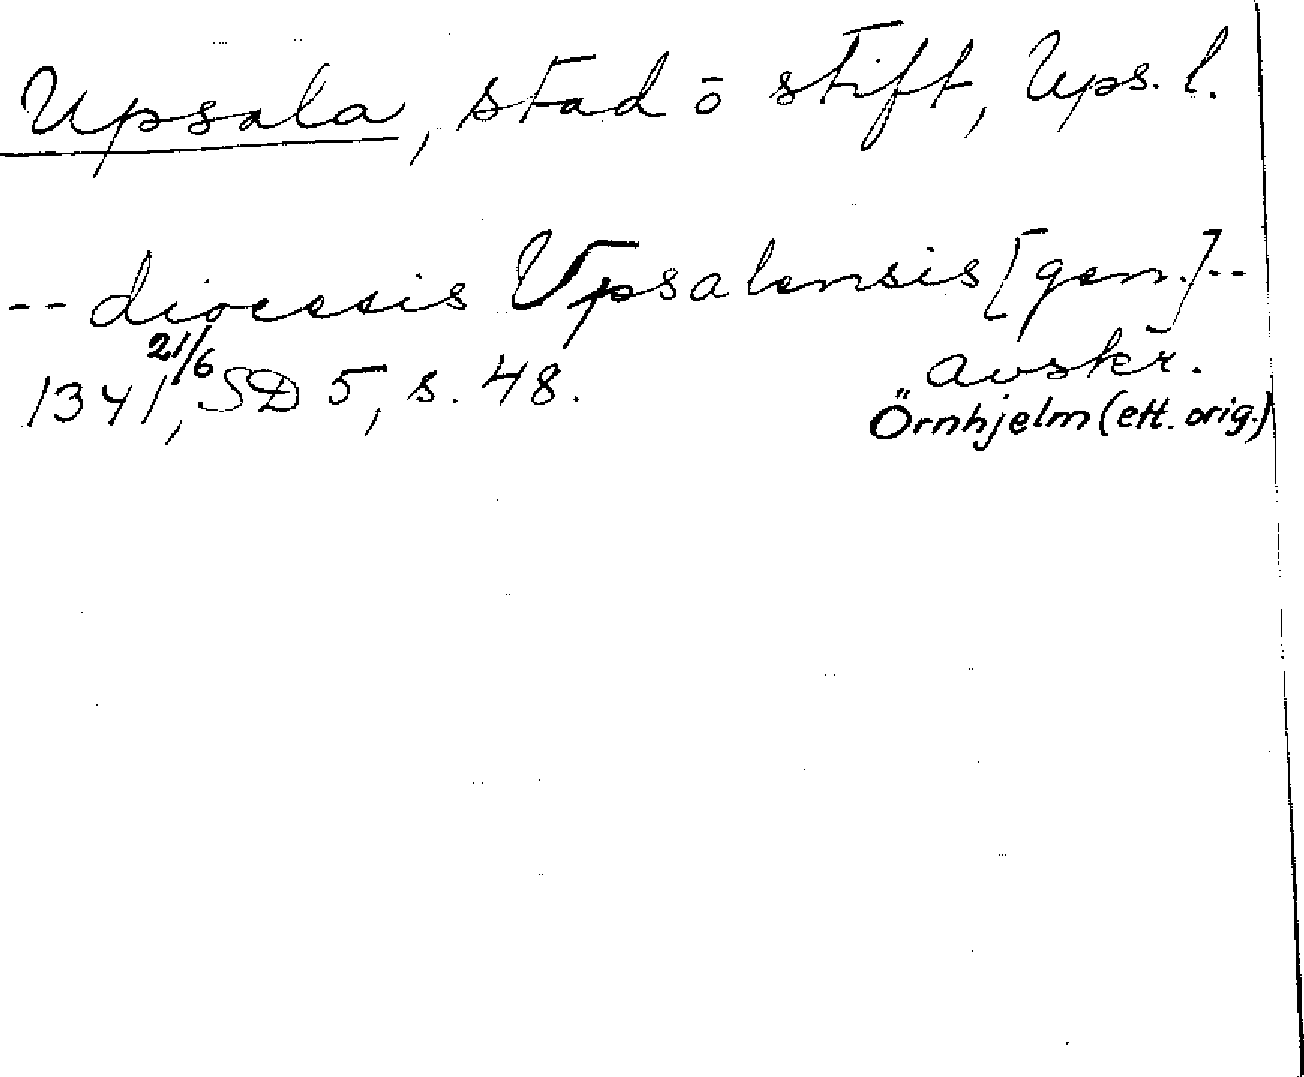 Upsala, stad o stift, Ups. l.
-- diocesis Vpsalensis [gen.] --
1341 21/6, SD 5, s. 48. avskr.
Örnhjelm (ett. orig.)